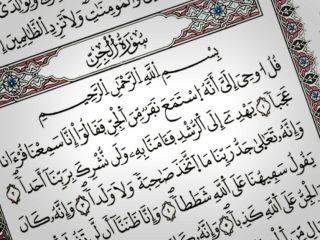 وَالْمُؤْمِنَاتِ وَلَا تَزِدِ الظَّالِمِينَ إِ
سُورَةُ الْجِنِّ
بِسْمِ اللَّهِ الرَّحْمَٰنِ الرَّحِيمِ
قُلْ أُوحِيَ إِلَيَّ أَنَّهُ اسْتَمَعَ نَفَرٌ مِّنَ الْجِنِّ فَقَالُوا إِنَّا سَمِعْنَا قُرْءَانًا
عَجَبًا ۝ يَهْدِي إِلَى الرُّشْدِ فَـَٔامَنَّا بِهِ وَلَن نُّشْرِكَ بِرَبِّنَا أَحَدًا ۝
وَأَنَّهُ تَعَالَىٰ جَدُّ رَبِّنَا مَا اتَّخَذَ صَاحِبَةً وَلَا وَلَدًا ۝ وَأَنَّهُ كَانَ
يَقُولُ سَفِيهُنَا عَلَى اللَّهِ شَطَطًا ۝ وَأَنَّا ظَنَنَّا أَن لَّن
الْجِنُّ عَلَى اللَّهِ كَذِبًا ۝ وَأَنَّهُ كَانَ